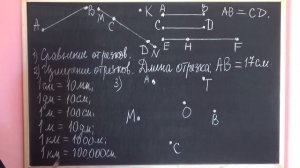 A
B
M
C
D
N
K
A B
C D
E H F
AB = CD.
1) Сравнение отрезков.
2) Измерение отрезков. Длина отрезка AB = 17 см
1 см = 10 мм;
1 дм = 10 см;
1 м = 100 см;
1 м = 10 дм;
1 км = 1000 м;
1 км = 100000 см
3)
A
T
M
O
B
C